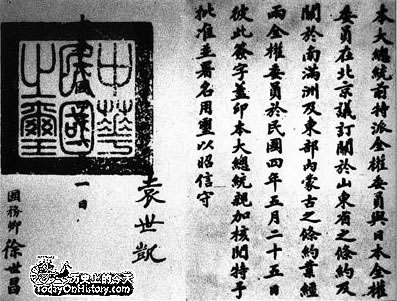 本大總統前特派全權委員與日本全權
委員在北京議訂關於山東省之條約及
關於南滿洲及東部內蒙古之條約業經
兩全權委員於民國四年五月二十五日
彼此簽字蓋印本大總統親加核閱特予
批准並署名用璽以照信守
袁世凱
中華民國之璽
一日
國務卿 徐世昌
历史上的今天
TodayOnHistory.com